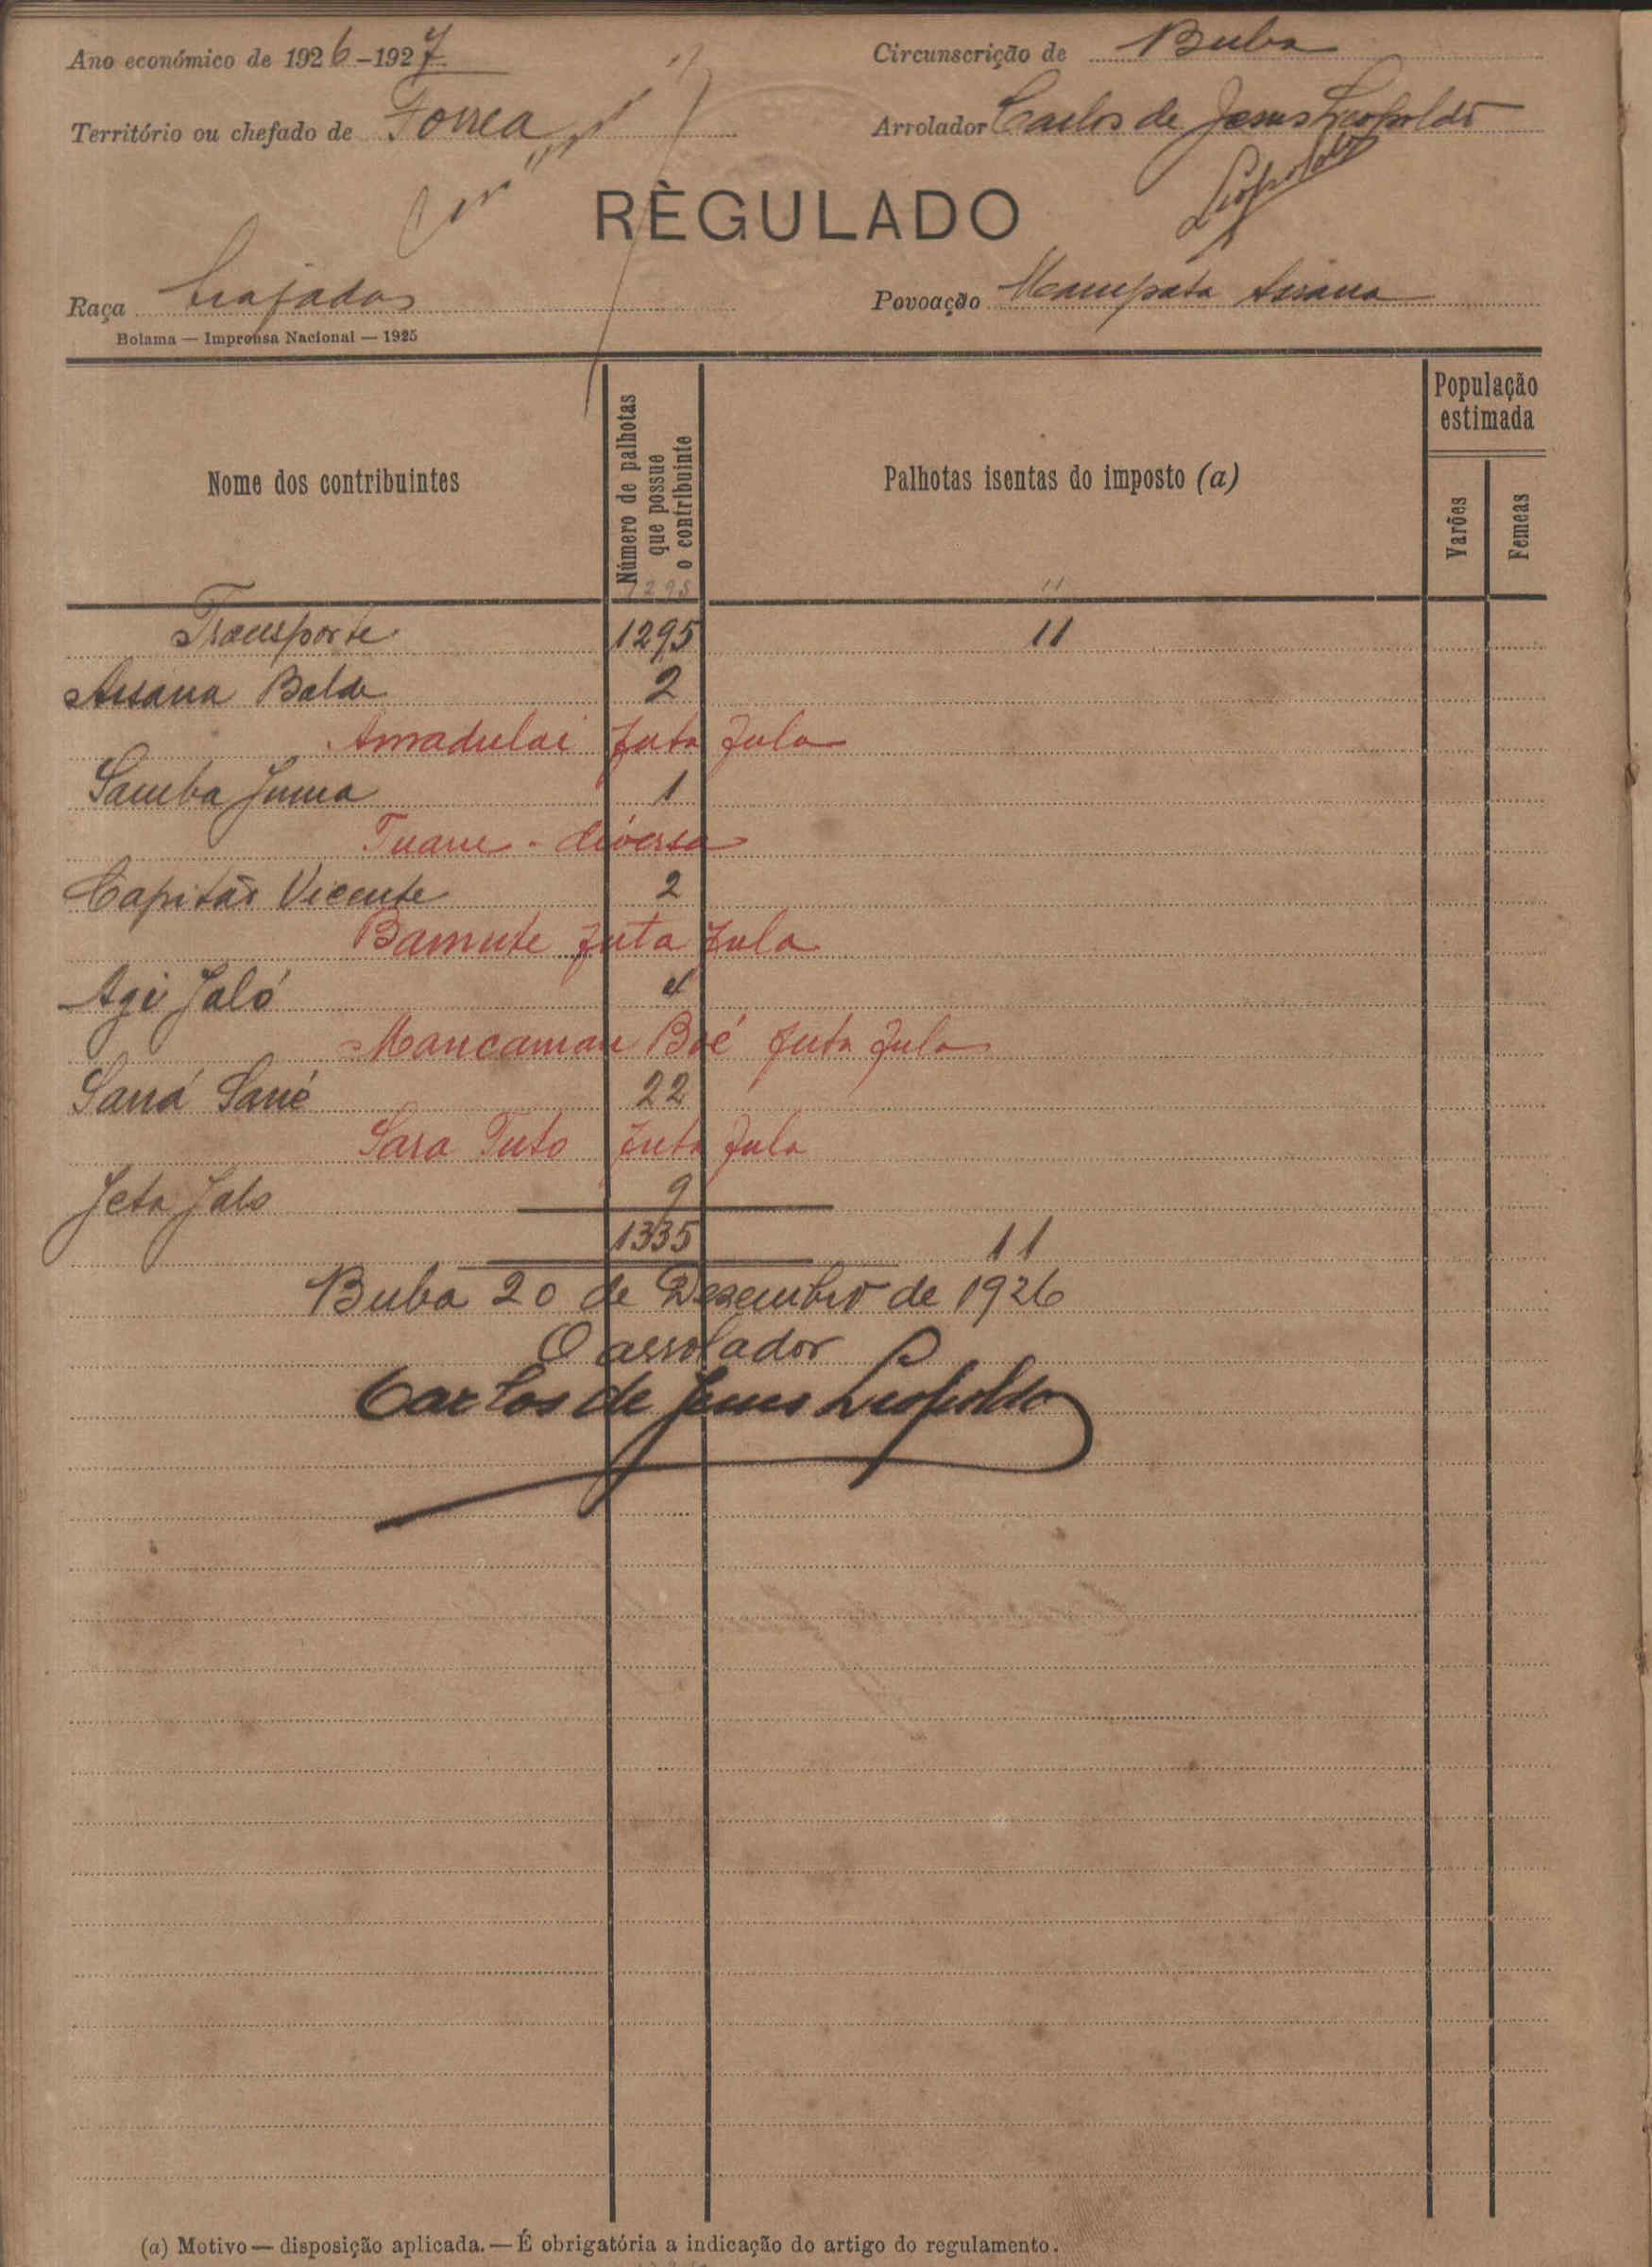 Ano económico de 1926-1927
Circunscrição de Buba
Território ou chefado de Forrea
Arrolador Carlos de Jesus Leopoldo
Leopoldo
RÈGULADO
Raça biafadas
Povoação Mampata
Bolama — Imprensa Nacional — 1925
Nome dos contribuintes
Número de palhotas que possue o contribuinte
Palhotas isentas do imposto (a)
População estimada
Varões
Femeas
1295 11
Transporte 1295 11
Assana Balde 2
Amadulai futa fula
Samba Juma 1
Tuane - diversa
Capitão Vicente 2
Bamute futa fula
Agi Jaló 4
Mancaman Boé futa fula
Saná Sané 22
Sara Tuto futa fula
Jeta Jalo 9
1335 11
Buba 20 de Desembro de 1926
O arrolador
Carlos de Jesus Leopoldo
(a) Motivo — disposição aplicada. — É obrigatória a indicação do artigo do regulamento.